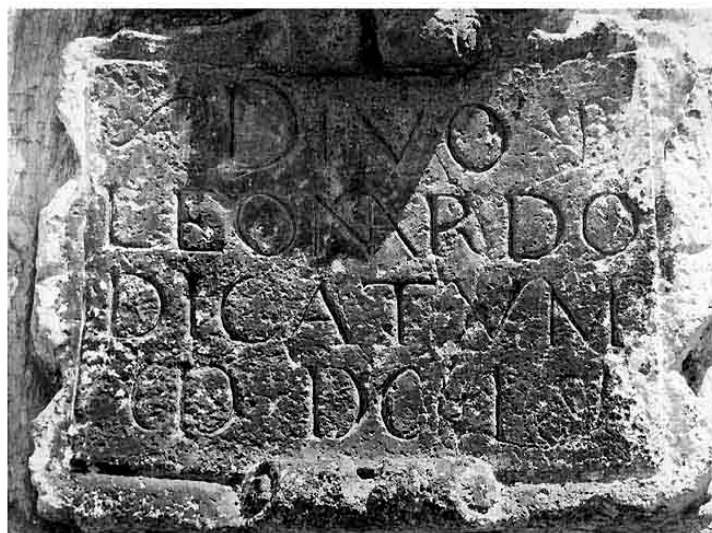 DIVO
LEONARDO
DICATVM
CIƆ DC